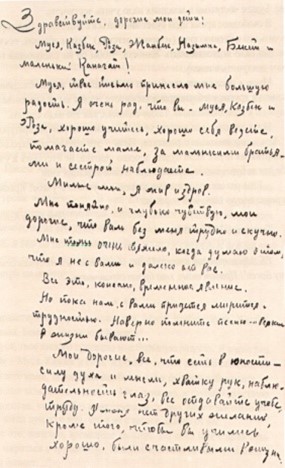 Здравствуйте, дорогие мои дети!
Муся, Казбек, Рози, Жанбек, Назымка, и
маленький Канагат!
Муся, твое письмо принесло мне большую
радость. Я очень рад, что вы - Муся, Казбек и
Рози, хорошо учитесь, хорошо себя ведете,
помогаете маме, за маленькими братья-
ми и сестрой наблюдаете.
Милые мои, я жив и здоров.
Мне понятно, и глубоко чувствую, мои
дорогие, что вам без меня трудно и скучно.
Мне очень тяжело, когда думаю о том,
что я не с вами и далеко от вас.
Все это, конечно, временное явление.
Но пока нам с вами придется мириться
трудностью. Наверно помните песню
в жизни бывают...
Мои дорогие, все, что есть в юности -
силу духа и мысли, хватку рук, наблю-
дательность глаз, все отдавайте учебе,
труду. У меня нет других желаний
кроме того, чтобы вы учились
хорошо, были счастливыми в жизни.